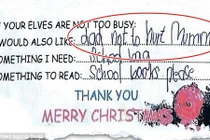 YOUR ELVES ARE NOT TOO BUSY:
WOULD ALSO LIKE: dad not to hurt Mummy
OMETHING I NEED: School bag
OMETHING TO READ: School books please
THANK YOU
MERRY CHRISTMAS